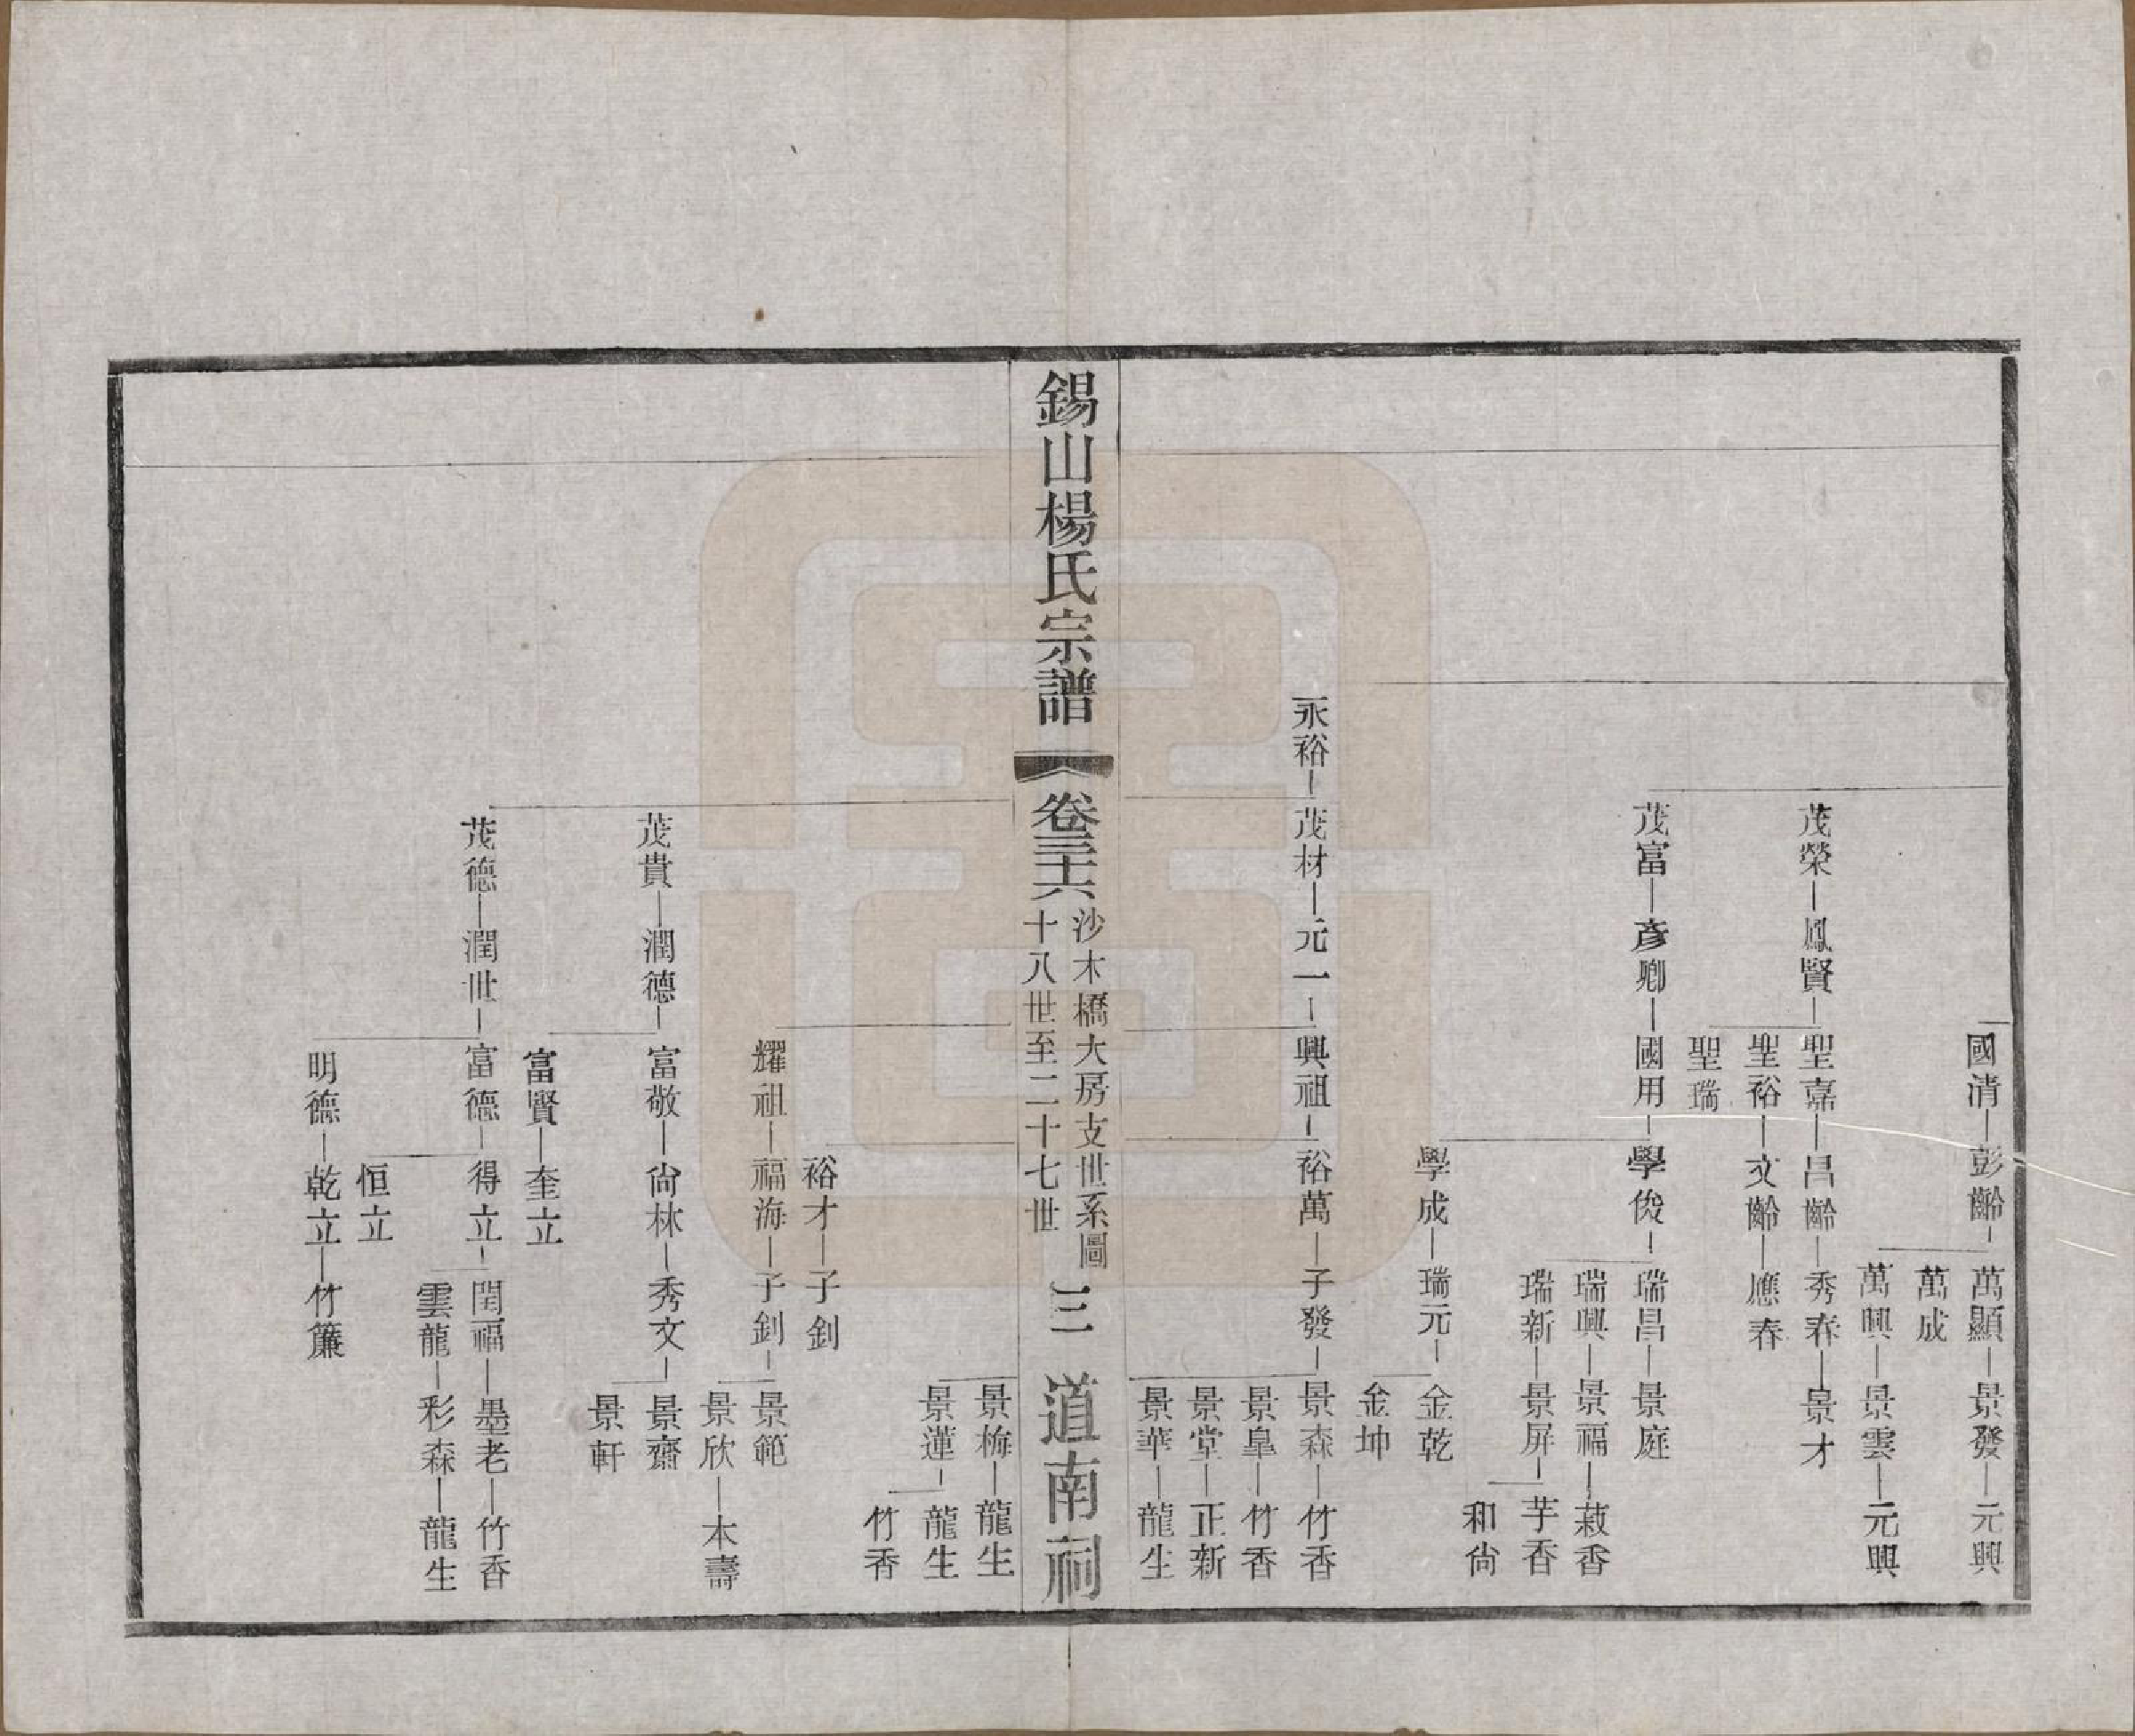 國清
彭齡
萬顯
景發
元興
萬成
萬興
景雲
元興
茂榮
鳳賢
聖嘉
昌齡
秀春
景才
聖裕
文齡
應春
聖瑞
茂富
彥卿
國用
學俊
瑞昌
景庭
瑞興
景福
菽香
瑞新
景屏
芋香
和尙
學成
瑞元
金乾
金坤
永裕
茂材
元一
興祖
裕萬
子發
景森
竹香
景臯
竹香
景堂
正新
景華
龍生
錫山楊氏宗譜
卷三十六
沙木橋大房支世系圖
十八世至二十七世
三
道南祠
景梅
龍生
景蓮
龍生
竹香
裕才
子釗
耀祖
福海
子釗
景範
景欣
木壽
茂貴
潤德
富敬
尙林
秀文
景齋
景軒
富賢
奎立
茂德
潤世
富德
得立
閏福
墨老
竹香
雲龍
彩森
龍生
恒立
明德
乾立
竹簾